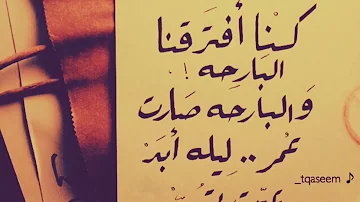 كنّا أفترقنا
البارحه !
والبارحه صارت
عمر .. ليله أبد
_tqaseem ♪